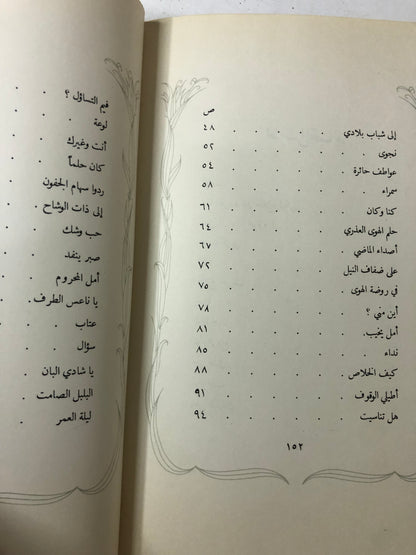 ص
إلى شباب بلادي . . . . . ٤٨
نجوى . . . . . . ٥٢
عواطف حائرة . . . . . ٥٤
سمراء . . . . . . ٥٨
كنا وكان . . . . . ٦١
حلم الهوى العذري . . . . ٦٤
أصداء الماضي . . . . . ٦٧
على ضفاف النيل . . . . ٧٢
في روضة الهوى . . . . . ٧٥
أين مني ؟ . . . . . ٧٨
أمل يخيب . . . . . . ٨١
نداء . . . . . . ٨٥
كيف الخلاص . . . . . ٨٨
أطيلي الوقوف . . . . . ٩١
هل تناسيت . . . . . ٩٤
١٥٢
فيم التساؤل ؟ . .
لوعة . . .
أنت وغيرك . .
كان حلماً . .
ردوا سهام الجفون .
إلى ذات الوشاح . .
حب وشك . .
صبر ينفد . .
أمل المحروم . .
يا ناعس الطرف . .
عتاب . . .
سؤال . . .
يا شادي البان . .
البلبل الصامت . .
ليلة العمر . .